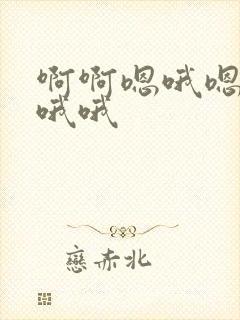 啊啊嗯哦嗯
哦哦
戀赤北